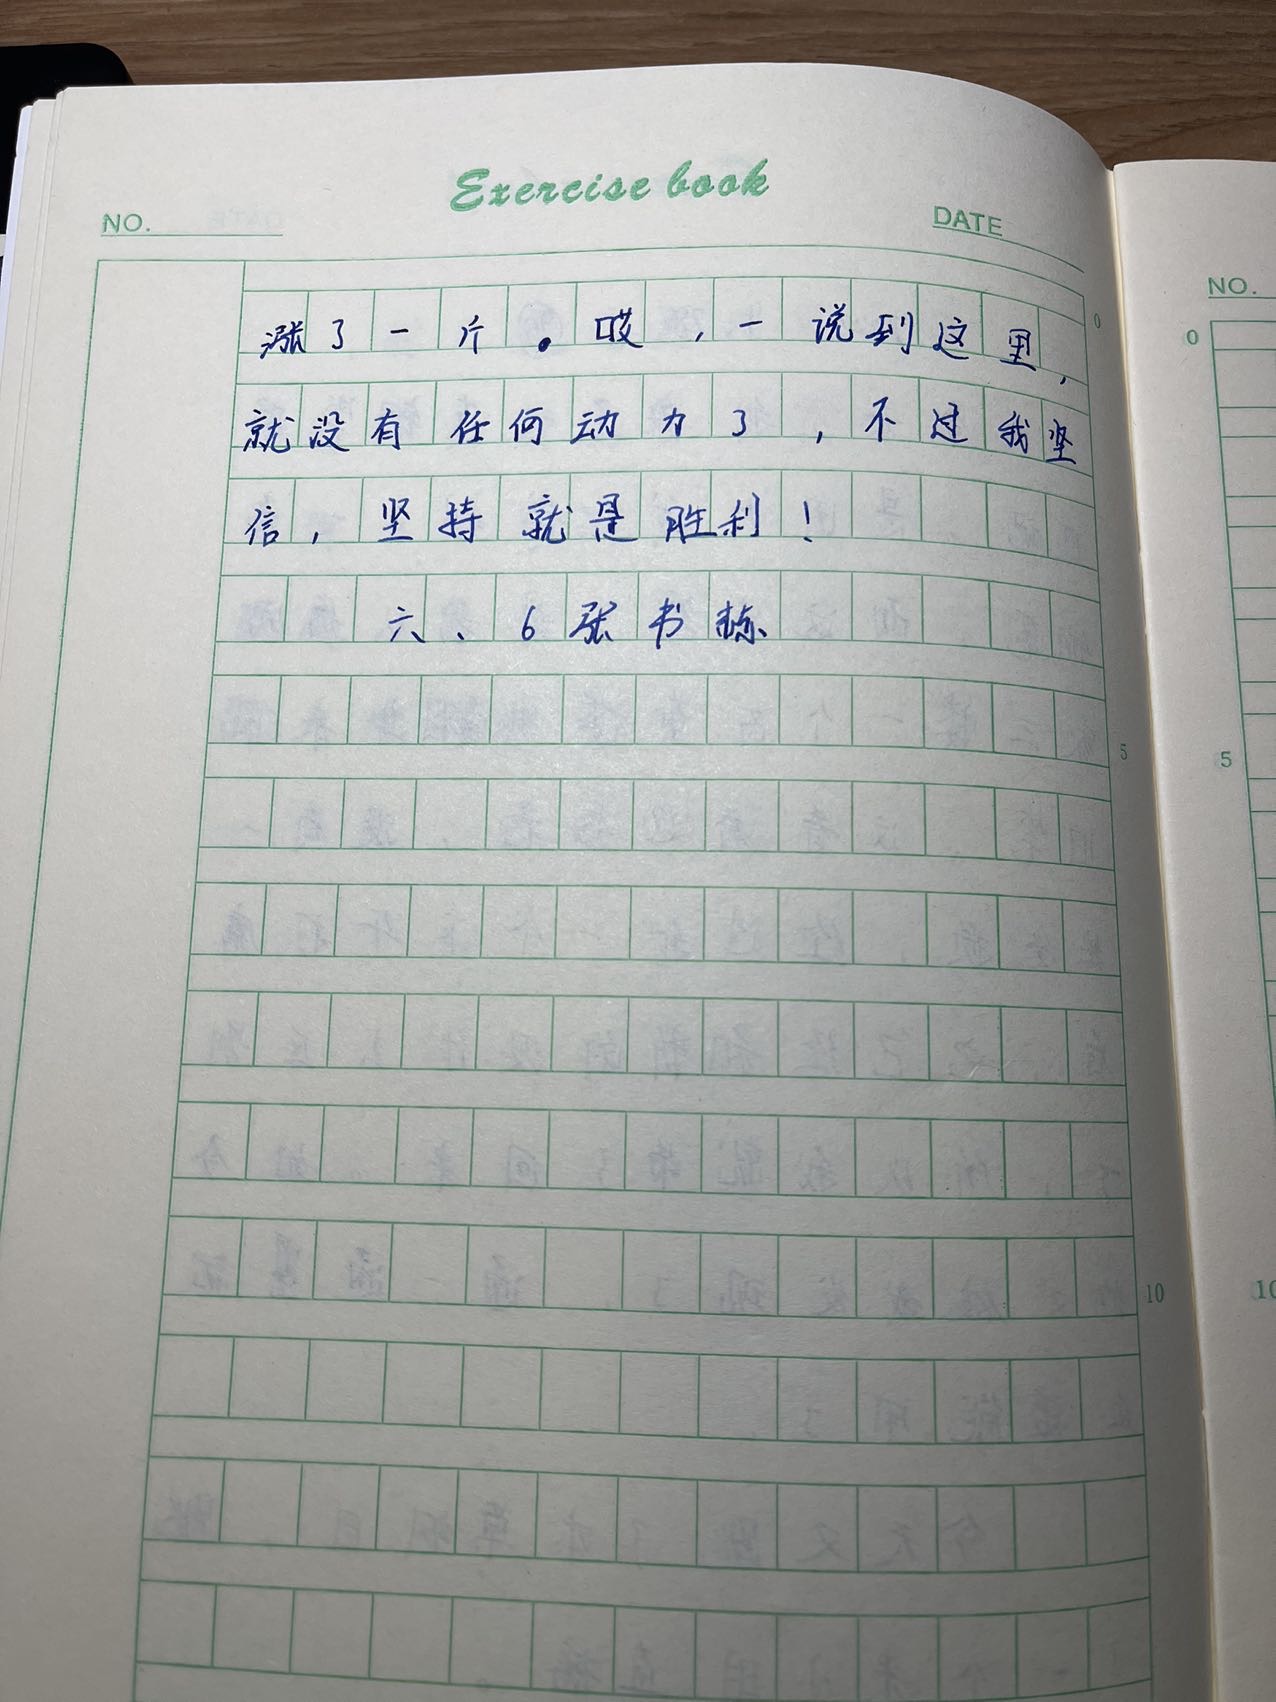 Exercise book
NO.
DATE
NO.
涨了一斤。哎,一说到这里,
就没有任何动力了,不过我坚
信,坚持就是胜利!
六、6张书
0
5
10
0
5
10